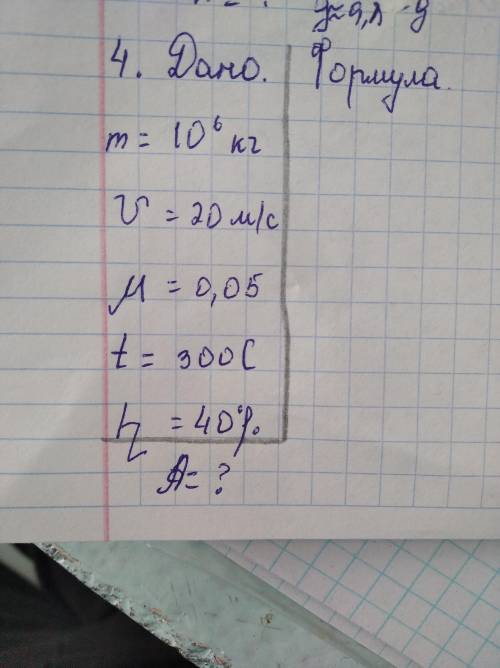 4. Дано. Формула.
m = 10⁶ кг
υ = 20 м/с
μ = 0,05
t = 300С
η = 40%.
A = ?